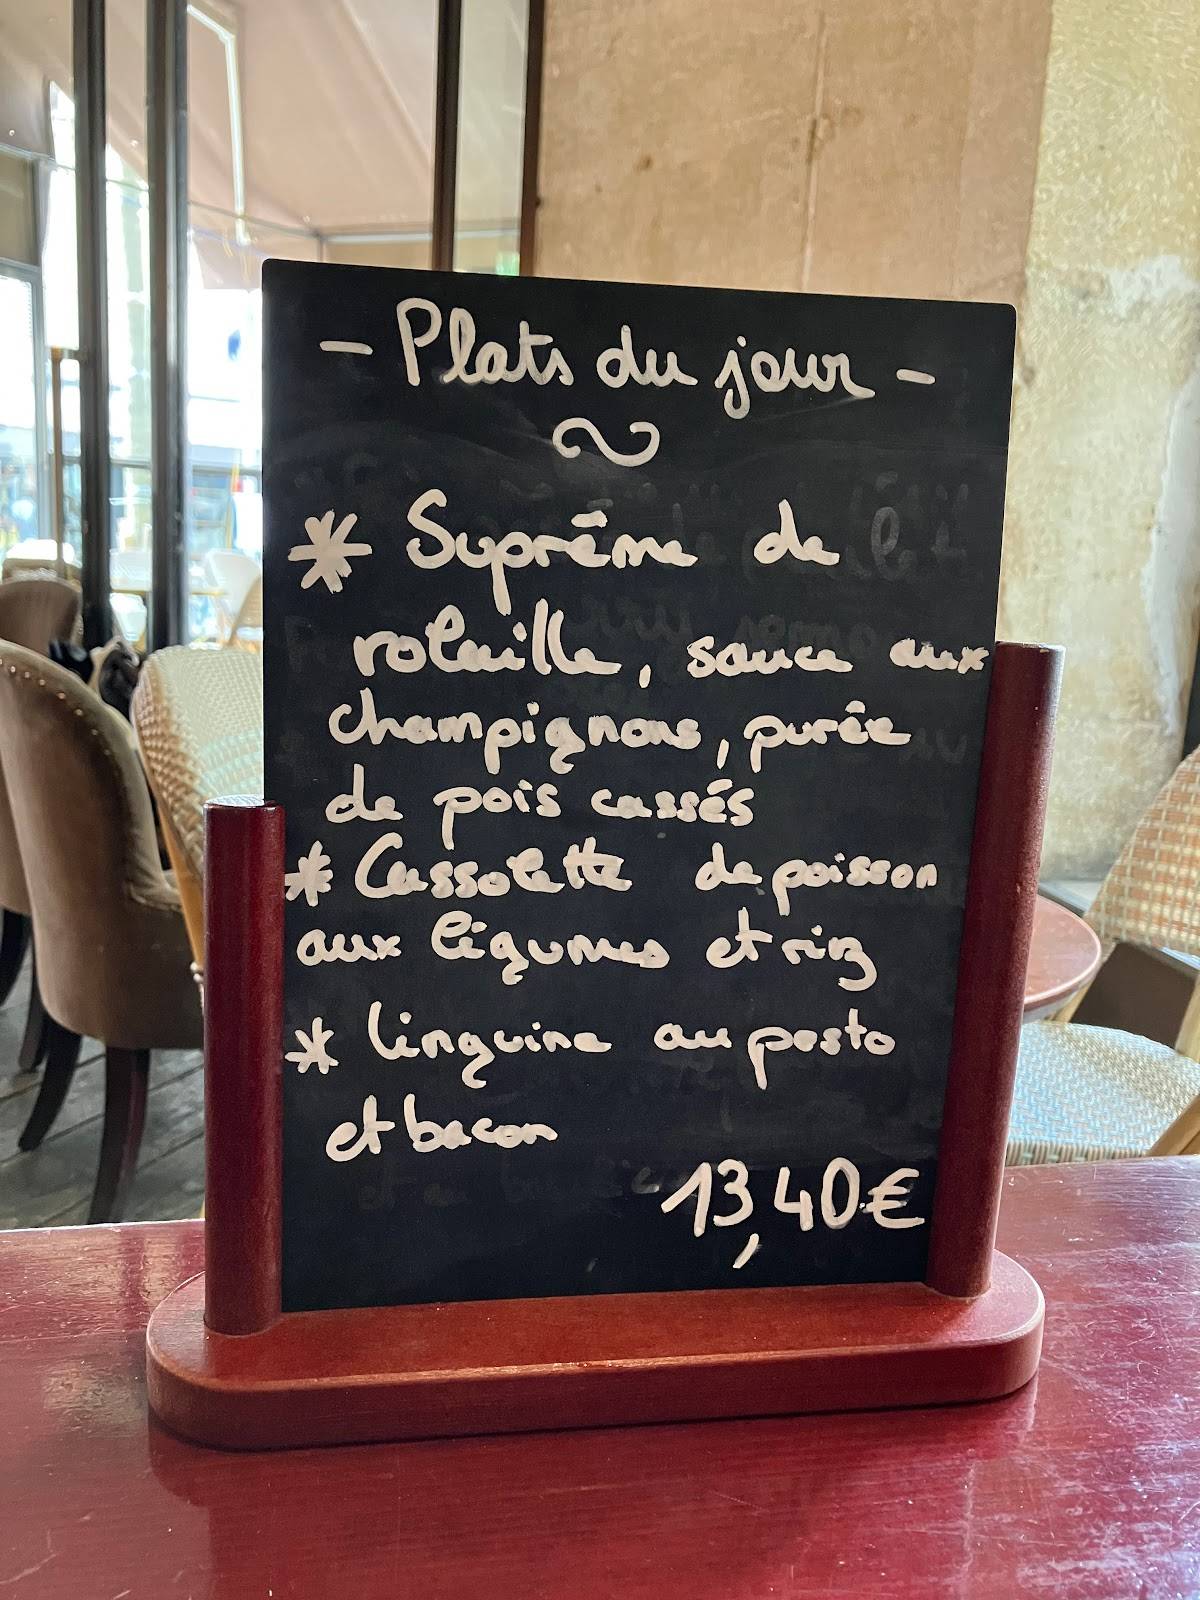 - Plats du jour -
* Suprême de
rolaille, sauce aux
champignons, purée
de pois cassés
* Cassolette de poisson
aux légumes et riz
* linguine au pesto
et bacon
13,40€